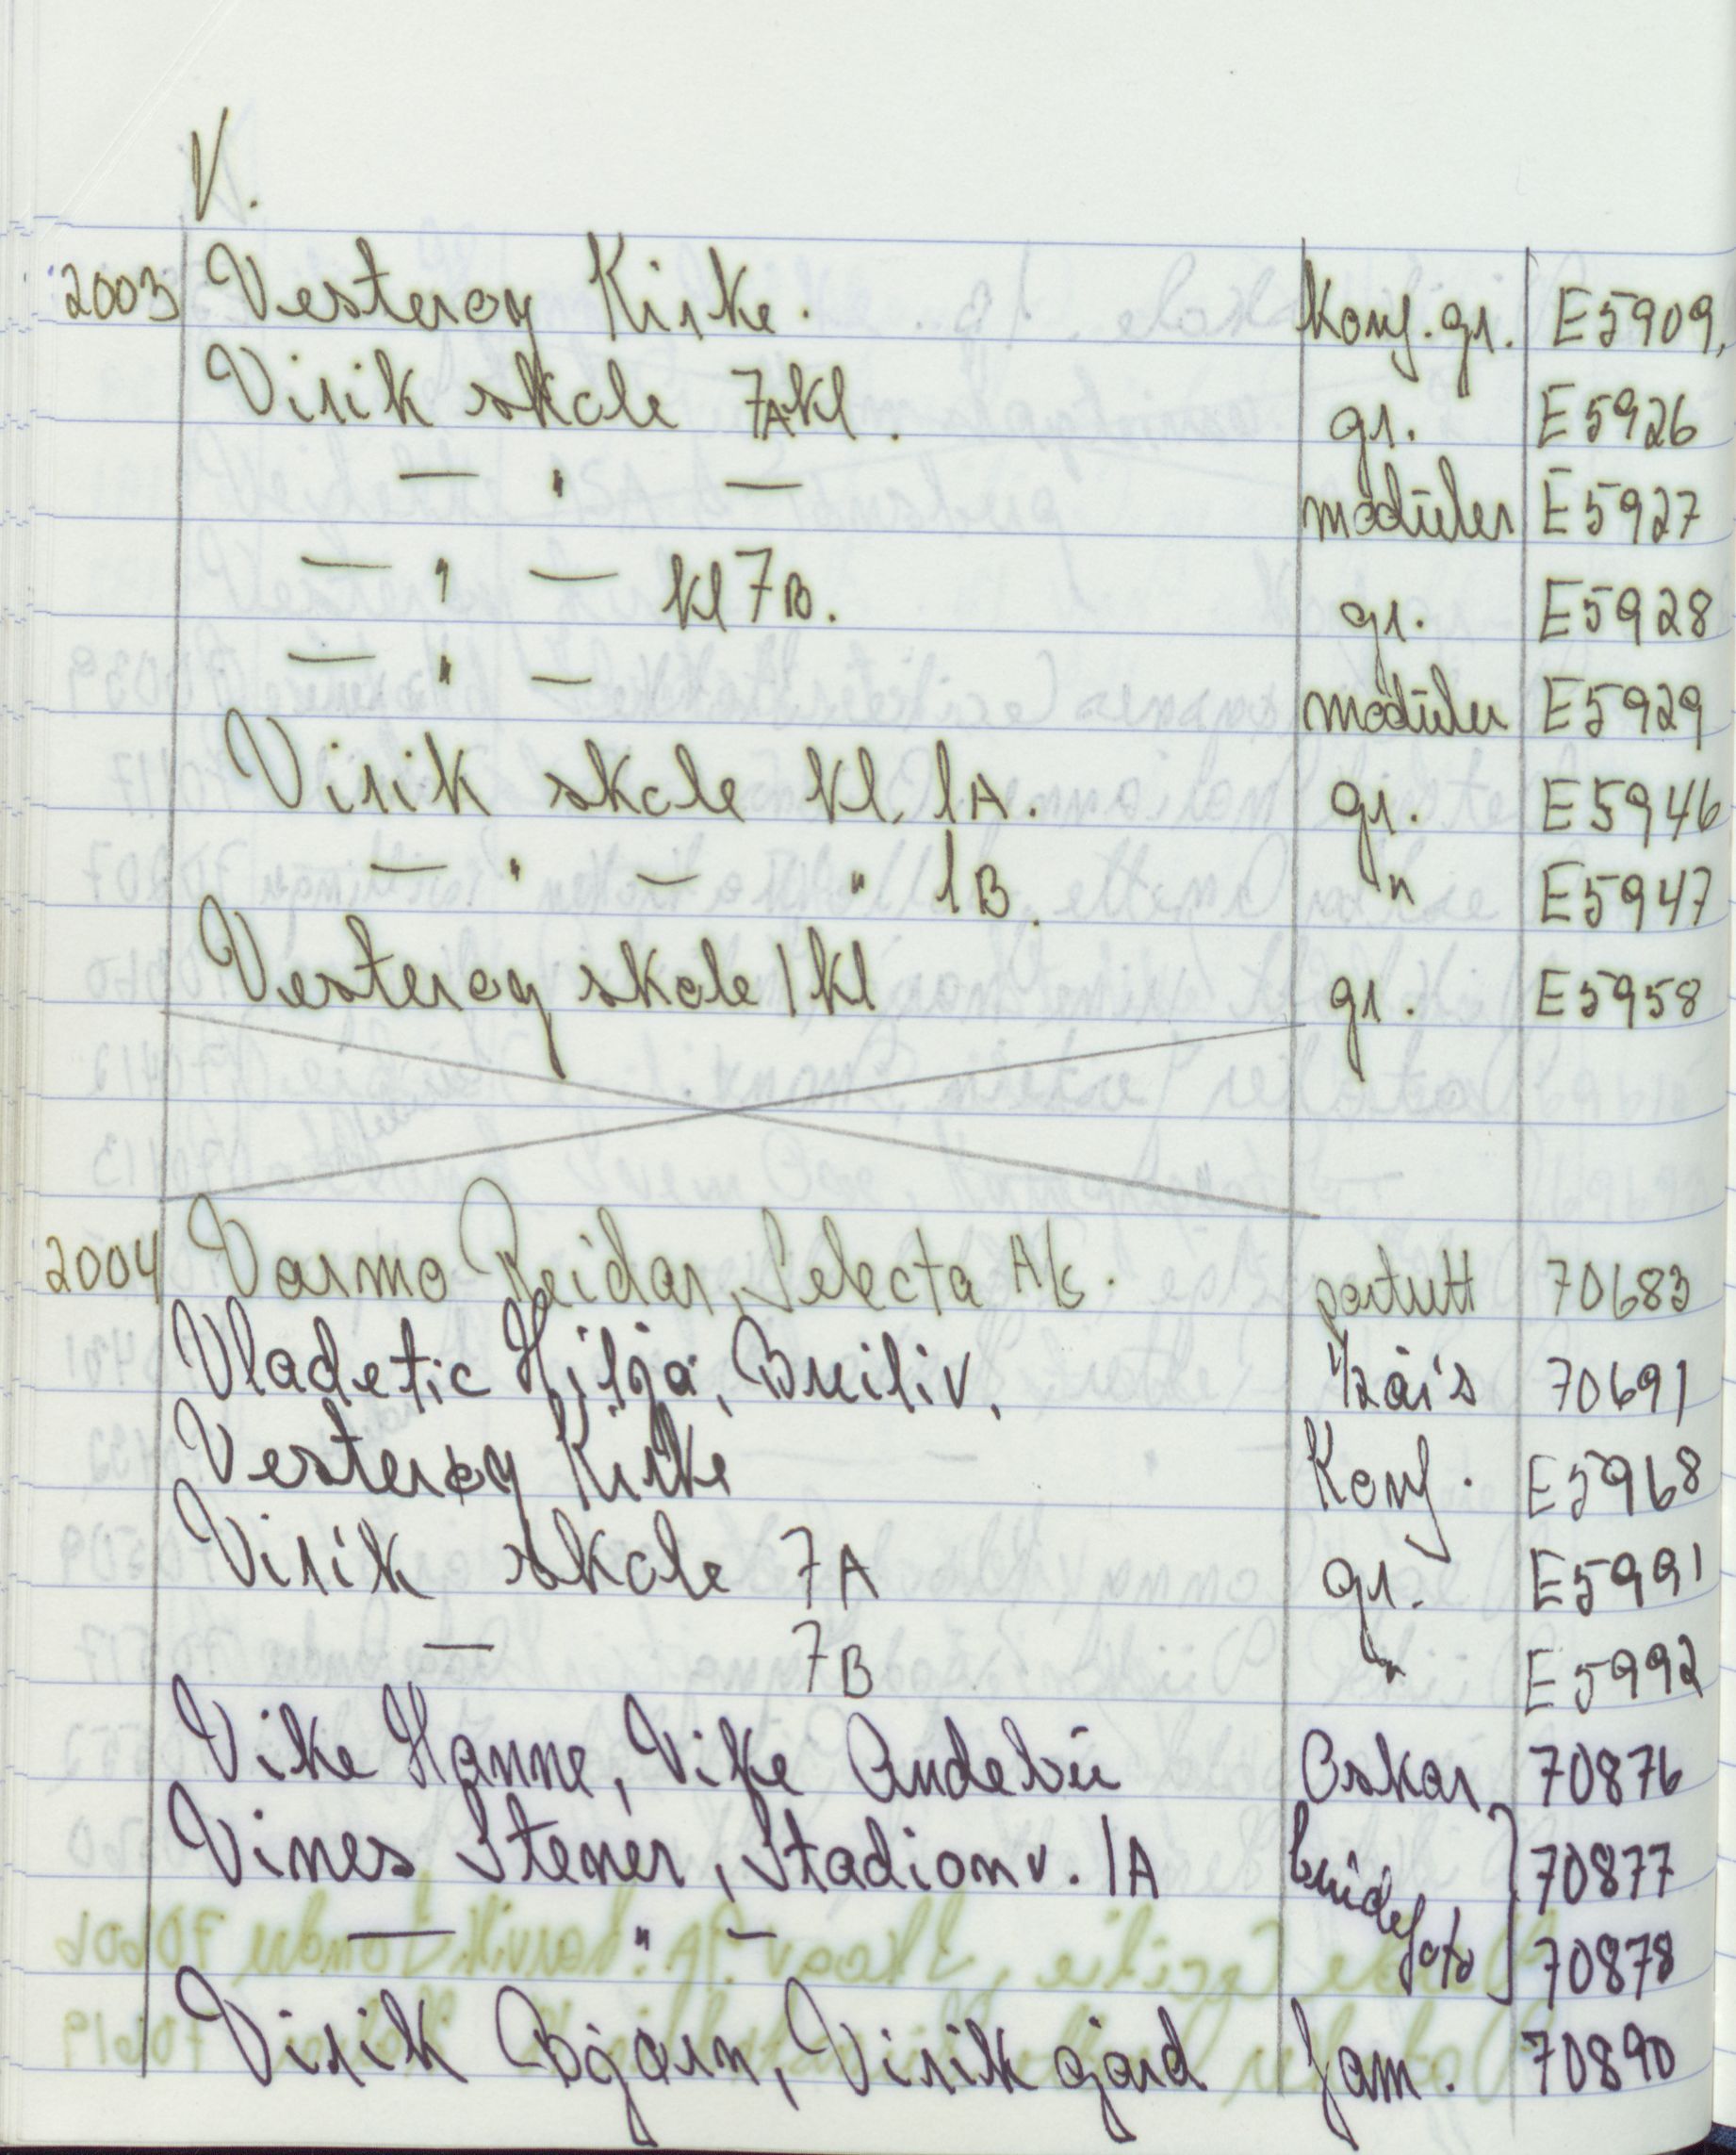 V.
2003 Vesterøy Kirke. Konf. gr. E5909.
Virik skole 7A kl. gr. E5926
— " — modüler E5927
— " — kl 7B. gr. E5928
— " — modüler E5929
Virik skole kl. 1A. gr. E5946
— " — " 1B. " E5947
Vesterøy skole 1 kl gr. E5958
2004 Varmo Reidar, Selecta A/s. portrett 70683
Vladetic Hilja, Breiliv. 1/2 års 70691
Vesterøy Kirke Konf. E5968
Virik skole 7A gr. E5991
— 7B " E5992
Vike Hanne, Vike Andebü Oskar 70876
Vines Stener, Stadionv. 1A brüdefoto 70877
— " — 70878
Virik Bjørn, Virik gård fam. 70890